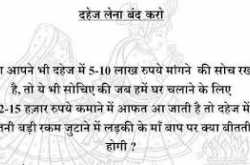 दहेज लेना बंद करो
आपने भी दहेज में 5-10 लाख रुपये मांगने की सोच रख
है, तो ये भी सोचिए की जब हमें घर चलाने के लिए
2-15 हज़ार रुपये कमाने में आफत आ जाती है तो दहेज में
बड़ी रकम जुटाने में लड़की के माँ बाप पर क्या बीतती
होगी ?